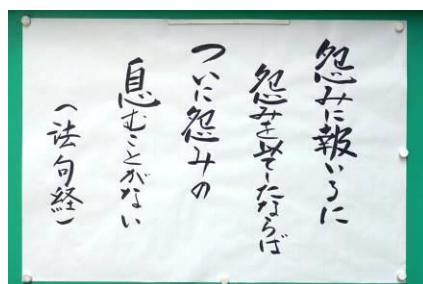 怨みに報いるに
怨みを以てしたならば
ついに怨みの
息むことがない
(法句経)